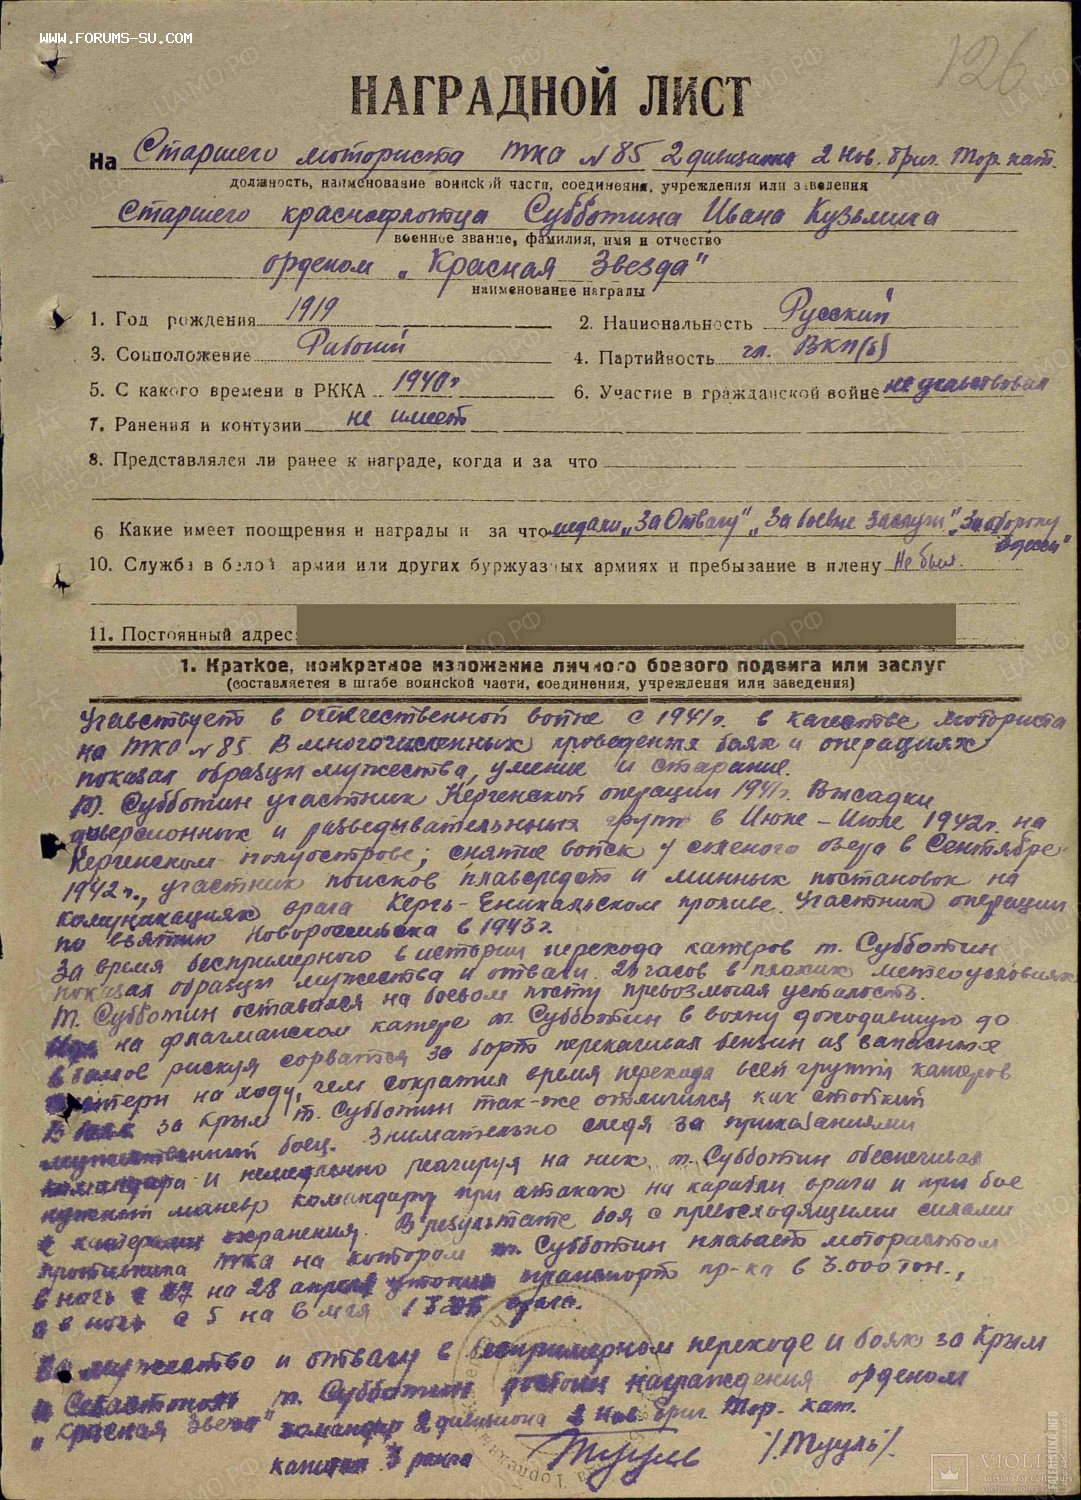 www.forums-su.com
126
НАГРАДНОЙ ЛИСТ
На Старшего моториста ТКА №85 2 дивизиона 2 Нов. бриг. Тор. кат.
должность, наименование воинской части, соединения, учреждения или заведения
Старшего краснофлотца Субботина Ивана Кузьмича
военное звание, фамилия, имя и отчество
орденом „Красная Звезда"
наименование награды
1. Год рождения 1919 2. Национальность Русский
3. Соцположение Рабочий 4. Партийность чл. ВКП(б)
5. С какого времени в РККА 1940г 6. Участие в гражданской войне не участвовал
7. Ранения и контузии не имеет
8. Представлялся ли ранее к награде, когда и за что
6 Какие имеет поощрения и награды и за что медали „За Отвагу" „За боевые заслуги", „За оборону
Одессы"
10. Служба в белой армии или других буржуазных армиях и пребывание в плену Не был.
11. Постоянный адрес:
1. Краткое, конкретное изложение личного боевого подвига или заслуг
(составляется в штабе воинской части, соединения, учреждения или заведения)
Участвует в отечественной войне с 1941г. в качестве моториста
на ТКА №85. В многочисленных проведенных боях и операциях
показал образцы мужества, умение и старание.
Т. Субботин участник Керченской операции 1941г. Высадки
диверсионных и разведывательных групп в Июне-Июле 1942г. на
Керченском полуострове; снятие войск у соленого озера в Сентябре
1942г., участник поисков плавсредств и минных постановок на
комуникациях врага Керчь-Еникальском проливе. Участник операции
по взятию Новороссийска в 1943г.
За время беспримерного в истории перехода катеров т. Субботин
показал образцы мужества и отваги. 26 часов в плохих метеоусловиях
т. Субботин оставался на боевом посту превозмогая усталость.
на флагманском катере т. Субботин в волну доходившую до
баллов рискуя сорватся за борт перекачивал бензин из запасных
на ходу, чем сократил время перехода всей группы катеров
В боях за Крым т. Субботин так-же отличился как стойкий
мужественный боец. Внимательно следя за приказаниями
командира и немедленно реагируя на них т. Субботин обеспечивал
нужный маневр командиру при атаках на карабли врага и при бое
с катерами охранения. В результате боя с превосходящими силами
противника ТКА на котором т. Субботин плавает мотористом
в ночь с 27 на 28 апреля утопил транспорт пр-ка в 3.000 тон.,
а в ночь с 5 на 6 мая врага.
За мужество и отвагу в беспримерном переходе и боях за Крым
и Севастополь т. Субботин достоин награждения орденом
„Красная Звезда" командир 2 дивизиона 2 Нов. бриг. Тор. кат.
капитан 3 ранга /Тууль/.
VIOLITY
Auction for Collectors
auction.violity.com